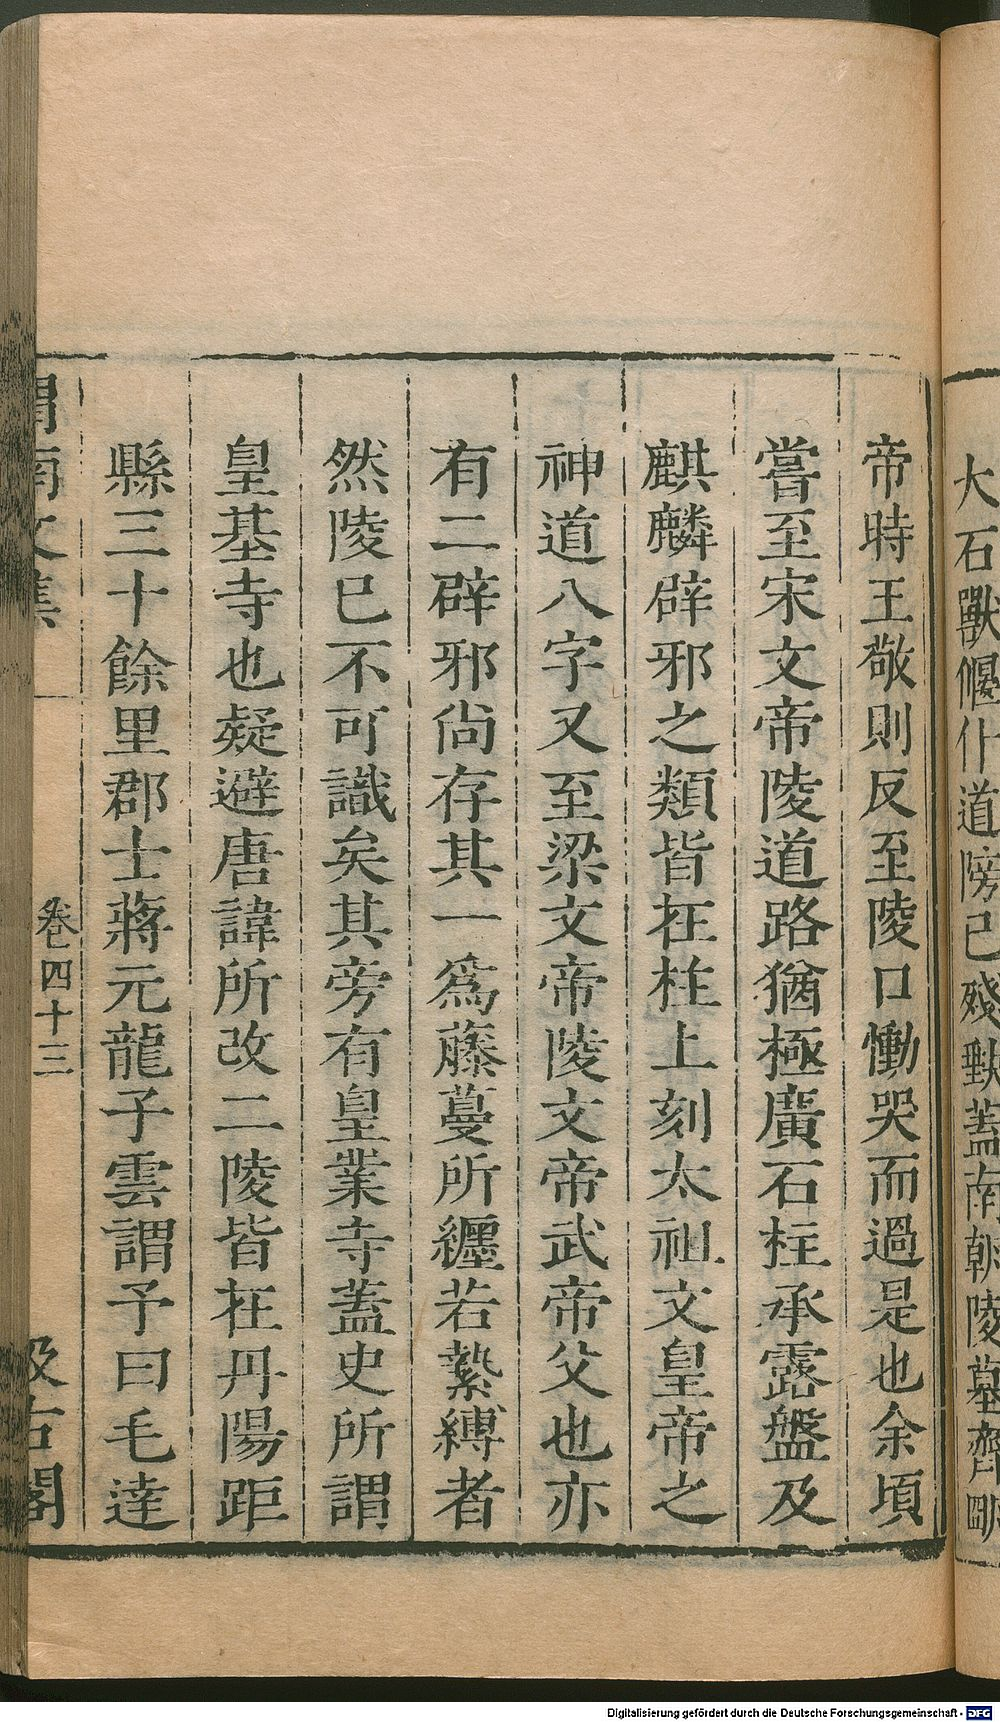 大石獸偃仆道傍已殘缺蓋南朝陵墓齊明
帝時王敬則反至陵口慟哭而過是也余頃
嘗至宋文帝陵道路猶極廣石柱承露盤及
麒麟辟邪之類皆在柱上刻太祖文皇帝之
神道八字又至梁文帝陵文帝武帝父也亦
有二辟邪尚存其一爲藤蔓所纒若縶縛者
然陵已不可識矣其旁有皇業寺蓋史所謂
皇基寺也疑避唐諱所改二陵皆在丹陽距
縣三十餘里郡士蔣元龍子雲謂予曰毛達
渭南文集 卷四十三 汲古閣
Digitalisierung gefördert durch die Deutsche Forschungsgemeinschaft - DFG